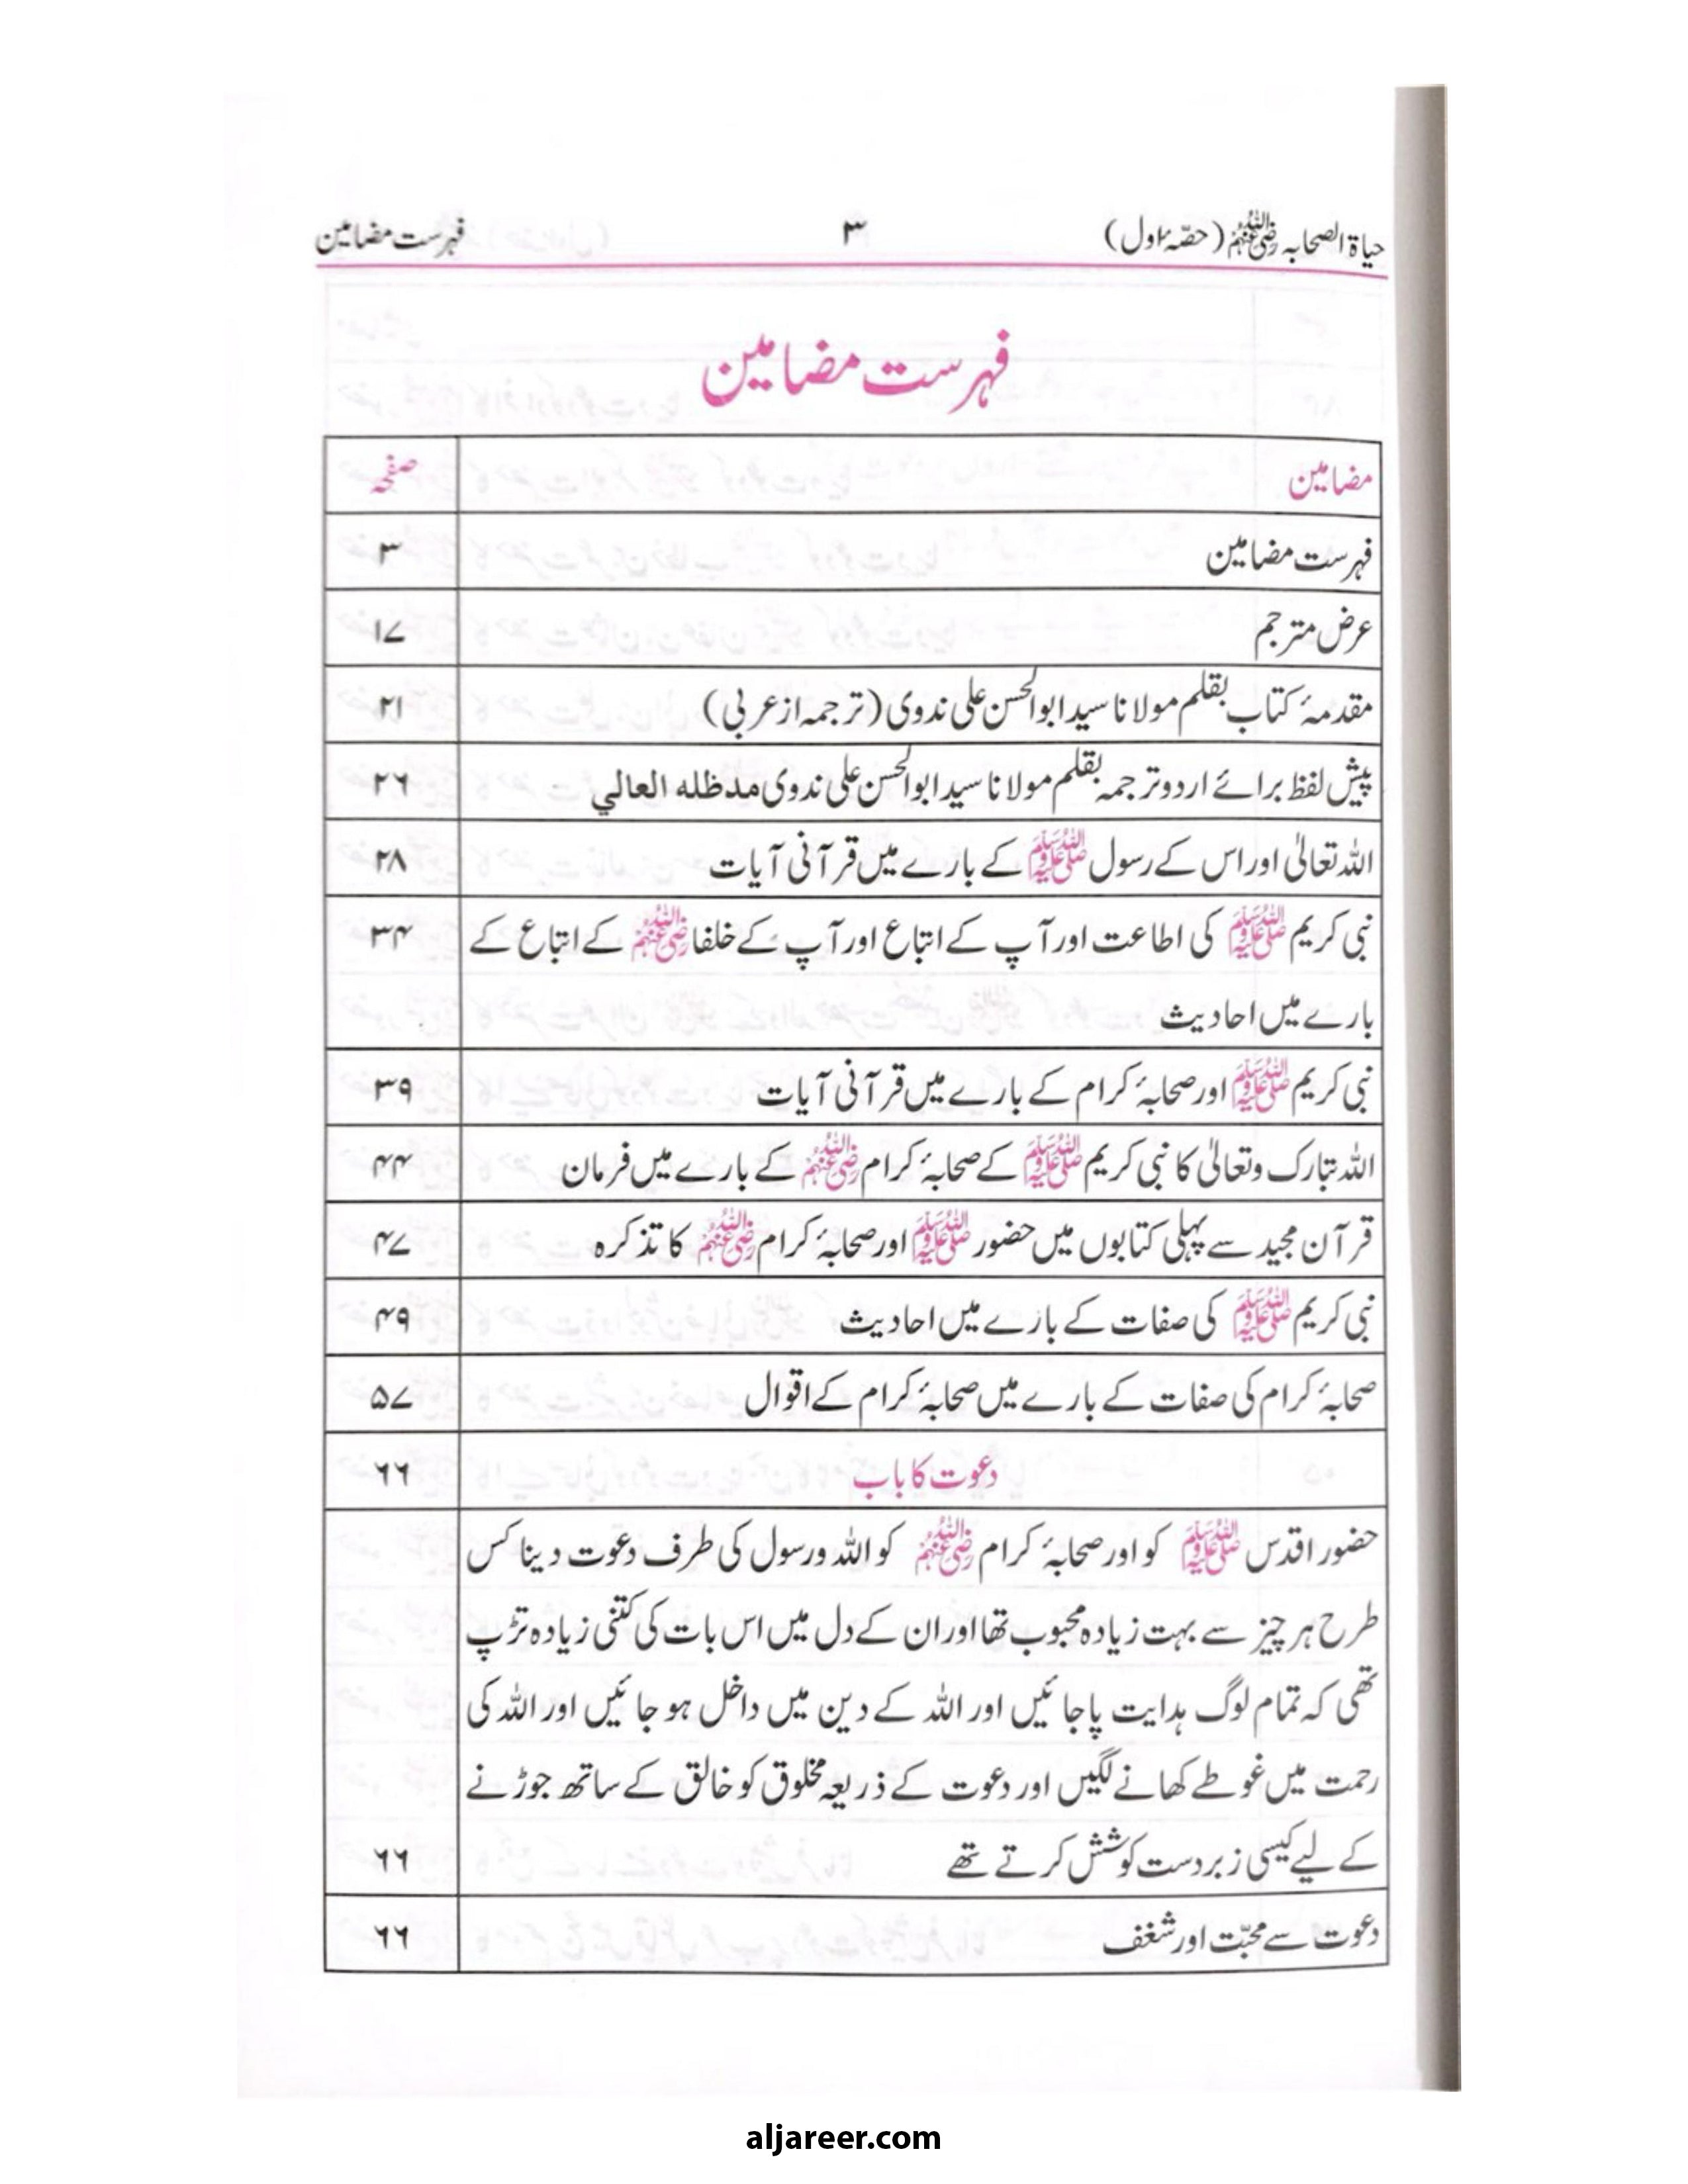 حیاۃ الصحابہ رضی اللہ عنہم (حصّۂ اول) ۳ فہرست مضامین
فہرست مضامین
مضامین صفحہ
فہرست مضامین ۳
عرض مترجم ۱۷
مقدمۂ کتاب بقلم مولانا سید ابوالحسن علی ندوی (ترجمہ از عربی) ۲۱
پیش لفظ برائے اردو ترجمہ بقلم مولانا سید ابوالحسن علی ندوی مدظله العالي ۲۶
اللہ تعالیٰ اور اس کے رسول ﷺ کے بارے میں قرآنی آیات ۲۸
نبی کریم ﷺ کی اطاعت اور آپ کے اتباع اور آپ کے خلفا رضی اللہ عنہم کے اتباع کے ۳۴
بارے میں احادیث
نبی کریم ﷺ اور صحابۂ کرام کے بارے میں قرآنی آیات ۳۹
اللہ تبارک وتعالیٰ کا نبی کریم ﷺ کے صحابۂ کرام رضی اللہ عنہم کے بارے میں فرمان ۴۴
قرآن مجید سے پہلی کتابوں میں حضور ﷺ اور صحابۂ کرام رضی اللہ عنہم کا تذکرہ ۴۷
نبی کریم ﷺ کی صفات کے بارے میں احادیث ۴۹
صحابۂ کرام کی صفات کے بارے میں صحابۂ کرام کے اقوال ۵۷
دعوت کا باب ۶۶
حضور اقدس ﷺ کو اور صحابۂ کرام رضی اللہ عنہم کو اللہ ورسول کی طرف دعوت دینا کس
طرح ہر چیز سے بہت زیادہ محبوب تھا اور ان کے دل میں اس بات کی کتنی زیادہ تڑپ
تھی کہ تمام لوگ ہدایت پا جائیں اور اللہ کے دین میں داخل ہو جائیں اور اللہ کی
رحمت میں غوطے کھانے لگیں اور دعوت کے ذریعہ مخلوق کو خالق کے ساتھ جوڑنے
کے لیے کیسی زبردست کوشش کرتے تھے ۶۶
دعوت سے محبّت اور شغف ۶۶
aljareer.com